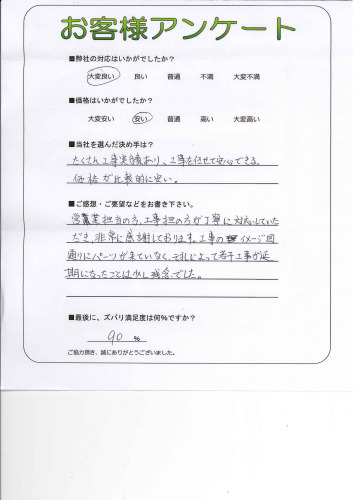 お客様アンケート
■弊社の対応はいかがでしたか?
大変良い 良い 普通 不満 大変不満
■価格はいかがでしたか?
大変安い 安い 普通 高い 大変高い
■当社を選んだ決め手は?
たくさん工事実績あり、工事を任せて安心できる。
価格が比較的に安い。
■ご感想・ご要望などをお書き下さい。
営業担当の方、工事担の方が丁寧に対応していた
だき、非常に感謝しております。工事のイメージ図
通りにパーツが来ていなく、それによって若干工事が延
期になったことは少し残念でした。
■最後に、ズバリ満足度は何%ですか?
90 %
ご協力頂き、誠にありがとうございました。